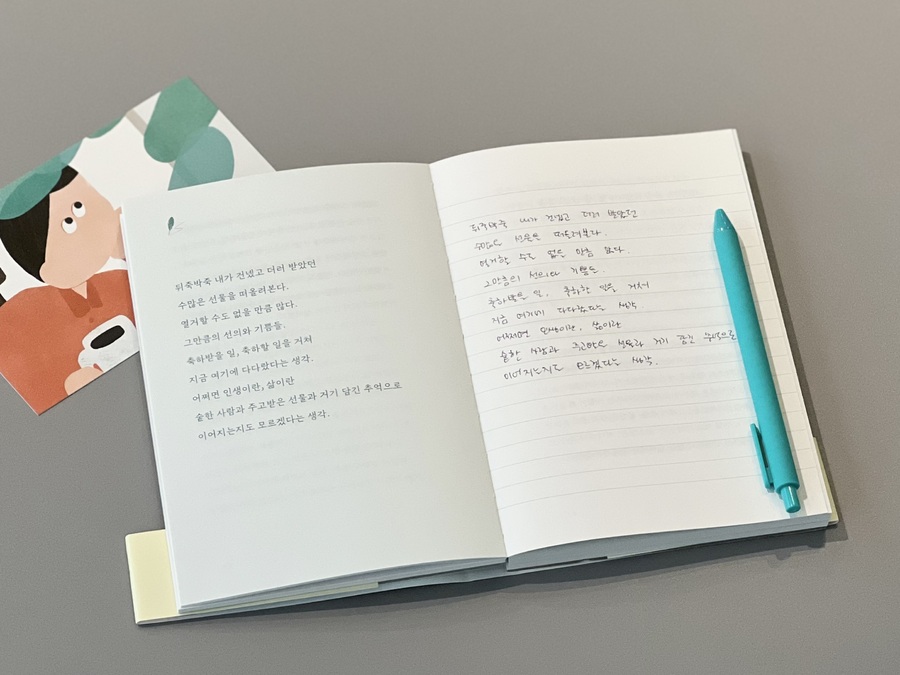 뒤죽박죽 내가 건넸고 더러 받았던
수많은 선물을 떠올려본다.
열거할 수도 없을 만큼 많다.
그만큼의 선의와 기쁨들.
축하받을 일, 축하할 일을 거쳐
지금 여기에 다다랐다는 생각.
어쩌면 인생이란, 삶이란
숱한 사람과 주고받은 선물과 거기 담긴 추억으로
이어지는지도 모르겠다는 생각.
뒤죽박죽 내가 건넸고 더러 받았던
수많은 선물을 떠올려본다.
열거할 수도 없을 만큼 많다.
그만큼의 선의와 기쁨들.
축하받을 일, 축하할 일을 거쳐
지금 여기에 다다랐다는 생각
어쩌면 인생이란, 삶이란
숱한 사람과 주고받은 선물과 거기 담긴 추억으로
이어지는지도 모르겠다는 생각.